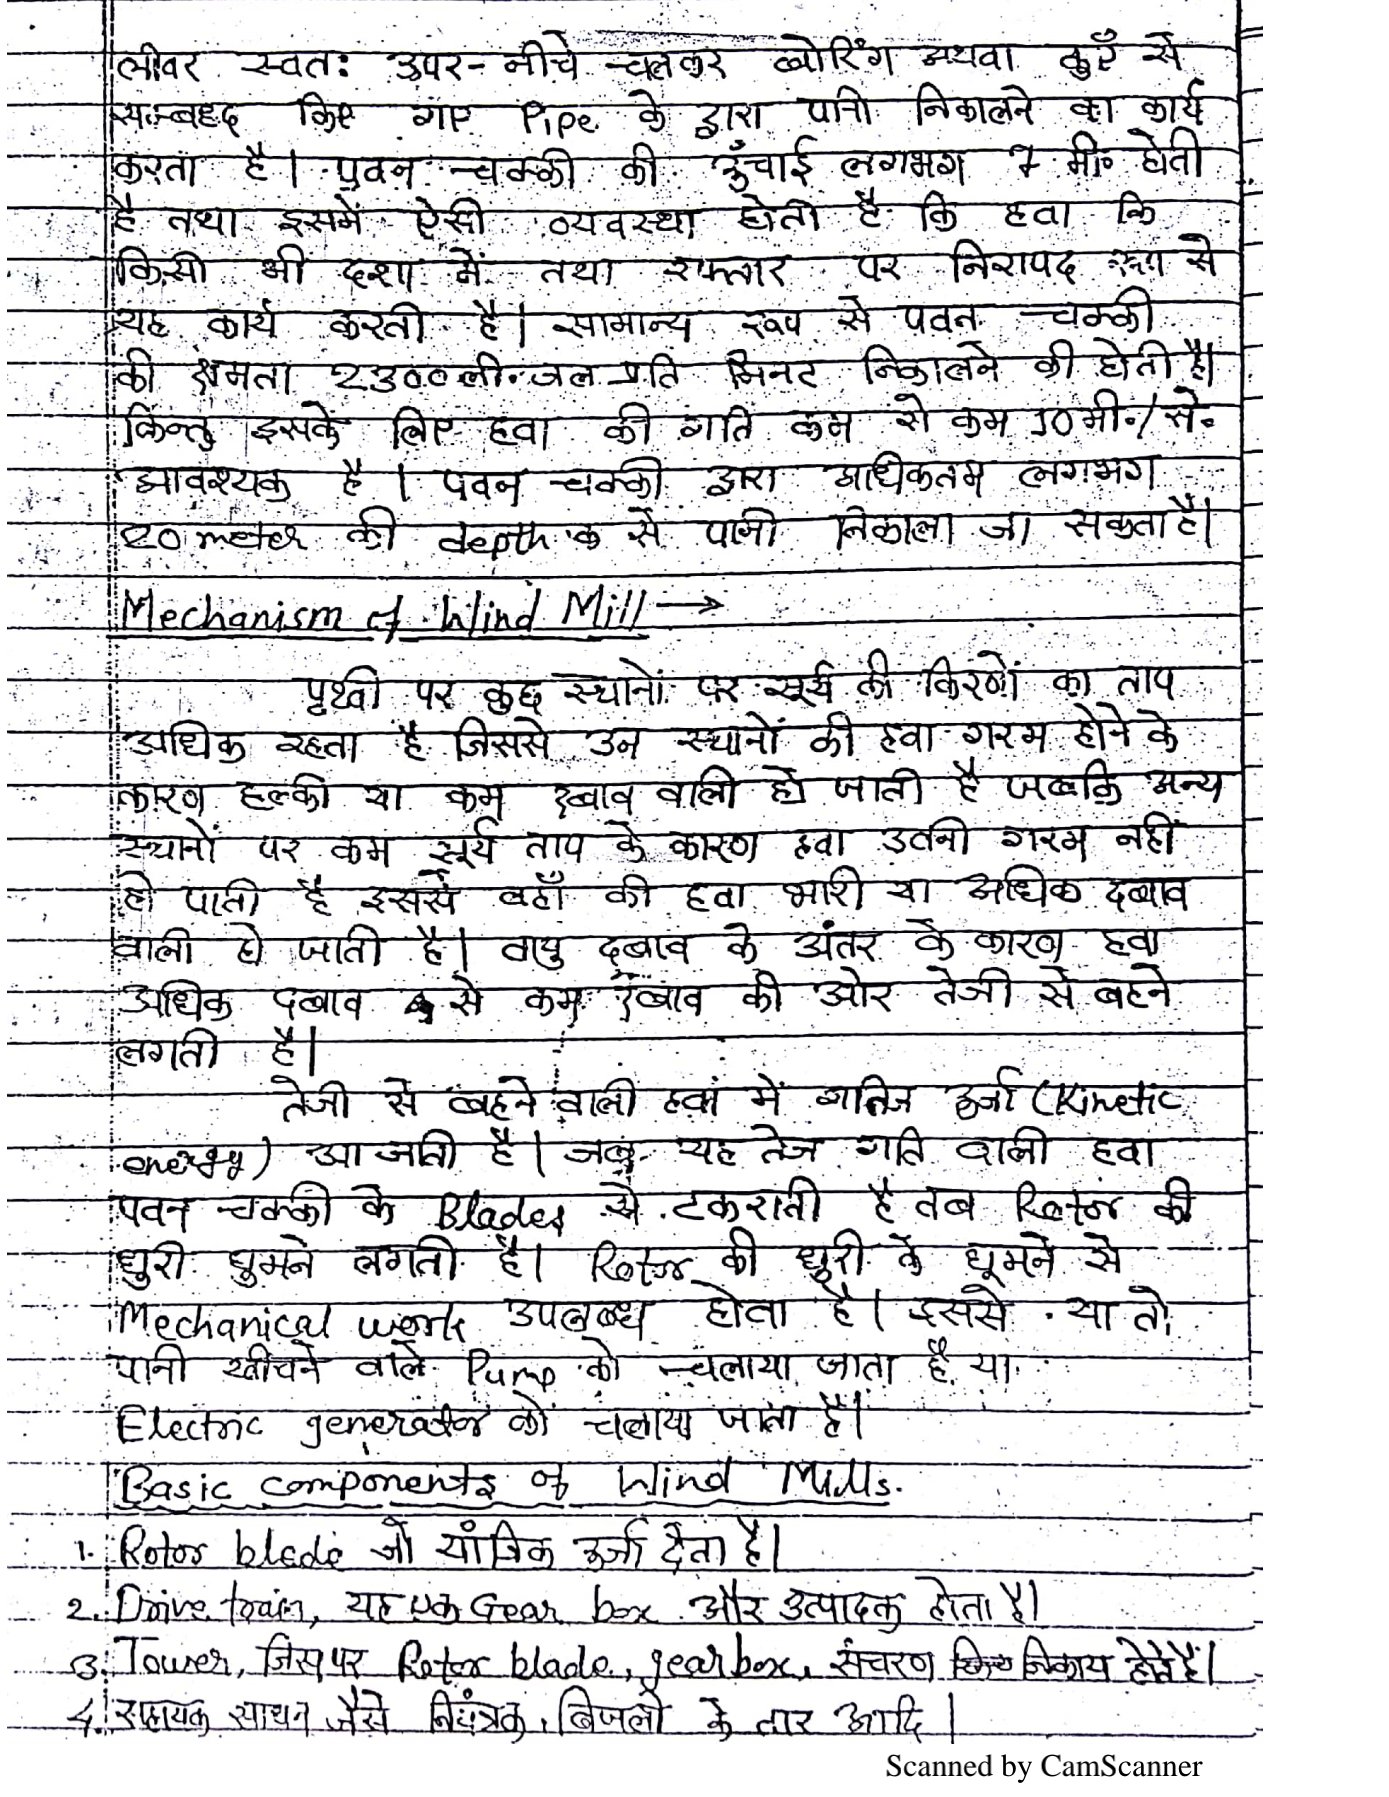 लीवर स्वतः उपर-नीचे चलकर बोरिंग अथवा कुएँ से
सम्बद्ध किए गए Pipe के द्वारा पानी निकालने का कार्य
करता है। पवन चक्की की ऊँचाई लगभग 7 मी॰ होती
है तथा इसमें ऐसी व्यवस्था होती है कि हवा कि
किसी भी दशा में तथा रफ्तार पर निरापद रूप से
यह कार्य करती है। सामान्य रूप से पवन चक्की
की क्षमता 2300 ली॰ जल प्रति मिनट निकालने की होती है।
किन्तु इसके लिए हवा की गति कम से कम 10 मी॰/से॰
आवश्यक है। पवन चक्की द्वारा अधिकतम लगभग
20 meter की depth से पानी निकाला जा सकता है।
Mechanism of Wind Mill →
पृथ्वी पर कुछ स्थानों पर सूर्य की किरणों का ताप
अधिक रहता है जिससे उन स्थानों की हवा गरम होने के
कारण हल्की या कम दबाव वाली हो जाती है जबकि अन्य
स्थानों पर कम सूर्य ताप के कारण हवा उतनी गरम नहीं
हो पाती है इससे वहाँ की हवा भारी या अधिक दबाव
वाली हो जाती है। वायु दबाव के अंतर के कारण हवा
अधिक दबाव से कम दबाव की ओर तेजी से बहने
लगती है।
तेजी से बहने वाली हवा में गतिज ऊर्जा (Kinetic
energy) आ जाती है। जब यह तेज गति वाली हवा
पवन चक्की के Blades से टकराती है तब Rotor की
धुरी घुमने लगती है। Rotor की धुरी के घूमने से
Mechanical work उपलब्ध होता है। इससे या तो
पानी खीचने वाले Pump को चलाया जाता है या
Electric generator को चलाया जाता है।
Basic components of Wind Mills.
1. Rotor blade जो यांत्रिक ऊर्जा देता है।
2. Drive train, यह एक Gear box और उत्पादक होता है।
3. Tower, जिसपर Rotor blade, gear box, संचरण निकाय होते हैं।
4. सहायक साधन जैसे नियंत्रक, बिजली के तार आदि।
Scanned by CamScanner